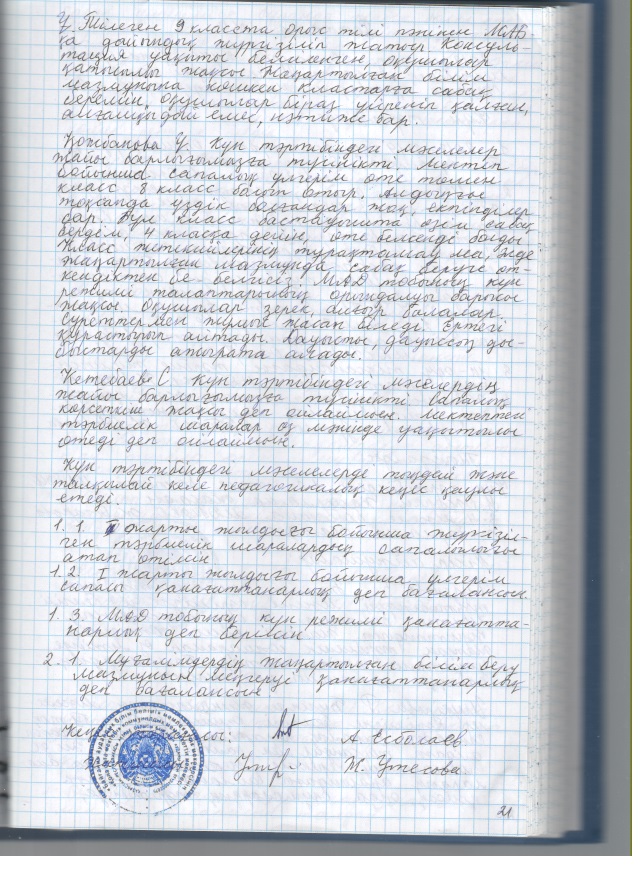 Ұ. Төлеген 9 класста орыс тілі пәнінен МАБ
қа дайындық жүргізіліп жатыр Консуль-
тация уақыты белгіленген, оқушылар
қатынасы жақсы Жаңартылған білім
мазмұнына көшкен кластарға сабақ
беремін, оқушылар біраз үйреніп қалған,
алғашқыдай емес, нәтиже бар.
У. Күн тәртібіндегі мәселелер
жайы барлығымызға түсінікті Мектеп
бойынша сапалық үлгерім өте төмен
класс 8 класс болып отыр. Алдыңғы
тоқсанда үздік болғандар жоқ, екпінділер
бар. Бұл класс бастауышта өзім сабақ
бердім, 4 класқа дейін, өте белсенді болды
Класс жетекшілерінің тұрақтамау ма, әлде
жаңартылған мазмұнда сабақ беруге өт-
кендіктен бе белгісіз. МАД тобының күн
режимі талаптарының орындалуы барысы
жақсы. Оқушылар зерек, алғыр балалар.
Суреттермен жұмыс жасап біледі. Ертегі
құрастырып айтады. Дауысты, дауыссыз ды-
быстарды ажырата алады.
Кетебаев С. Күн тәртібіндегі мәселердің
жайы барлығымызға түсінікті Сапалық
көрсеткіш жақсы деп ойлаймын. Мектептегі
тәрбиелік шаралар өз мәнінде уақытылы
өтеді деп ойлаймын.
Күн тәртібіндегі мәселелерде тыңдай және
талқылай келе педагогикалық кеңес қаулы
етеді.
1. 1. I жарты жылдығы бойынша жүргізіл-
ген тәрбиелік шаралардың сапалылығы
атап өтілсін
1. 2. I жарты жылдығы бойынша үлгерім
сапасы қанағаттанарлық деп бағалансын
1. 3. МАД тобының күн режимі қанағатта-
нарлық деп берілсін
2. 1. Мұғалімдердің жаңартылған білім беру
мазмұнын меңгеруі қанағаттанарлық
деп бағалансын
А. Есболаев
Ж. Утесова
21